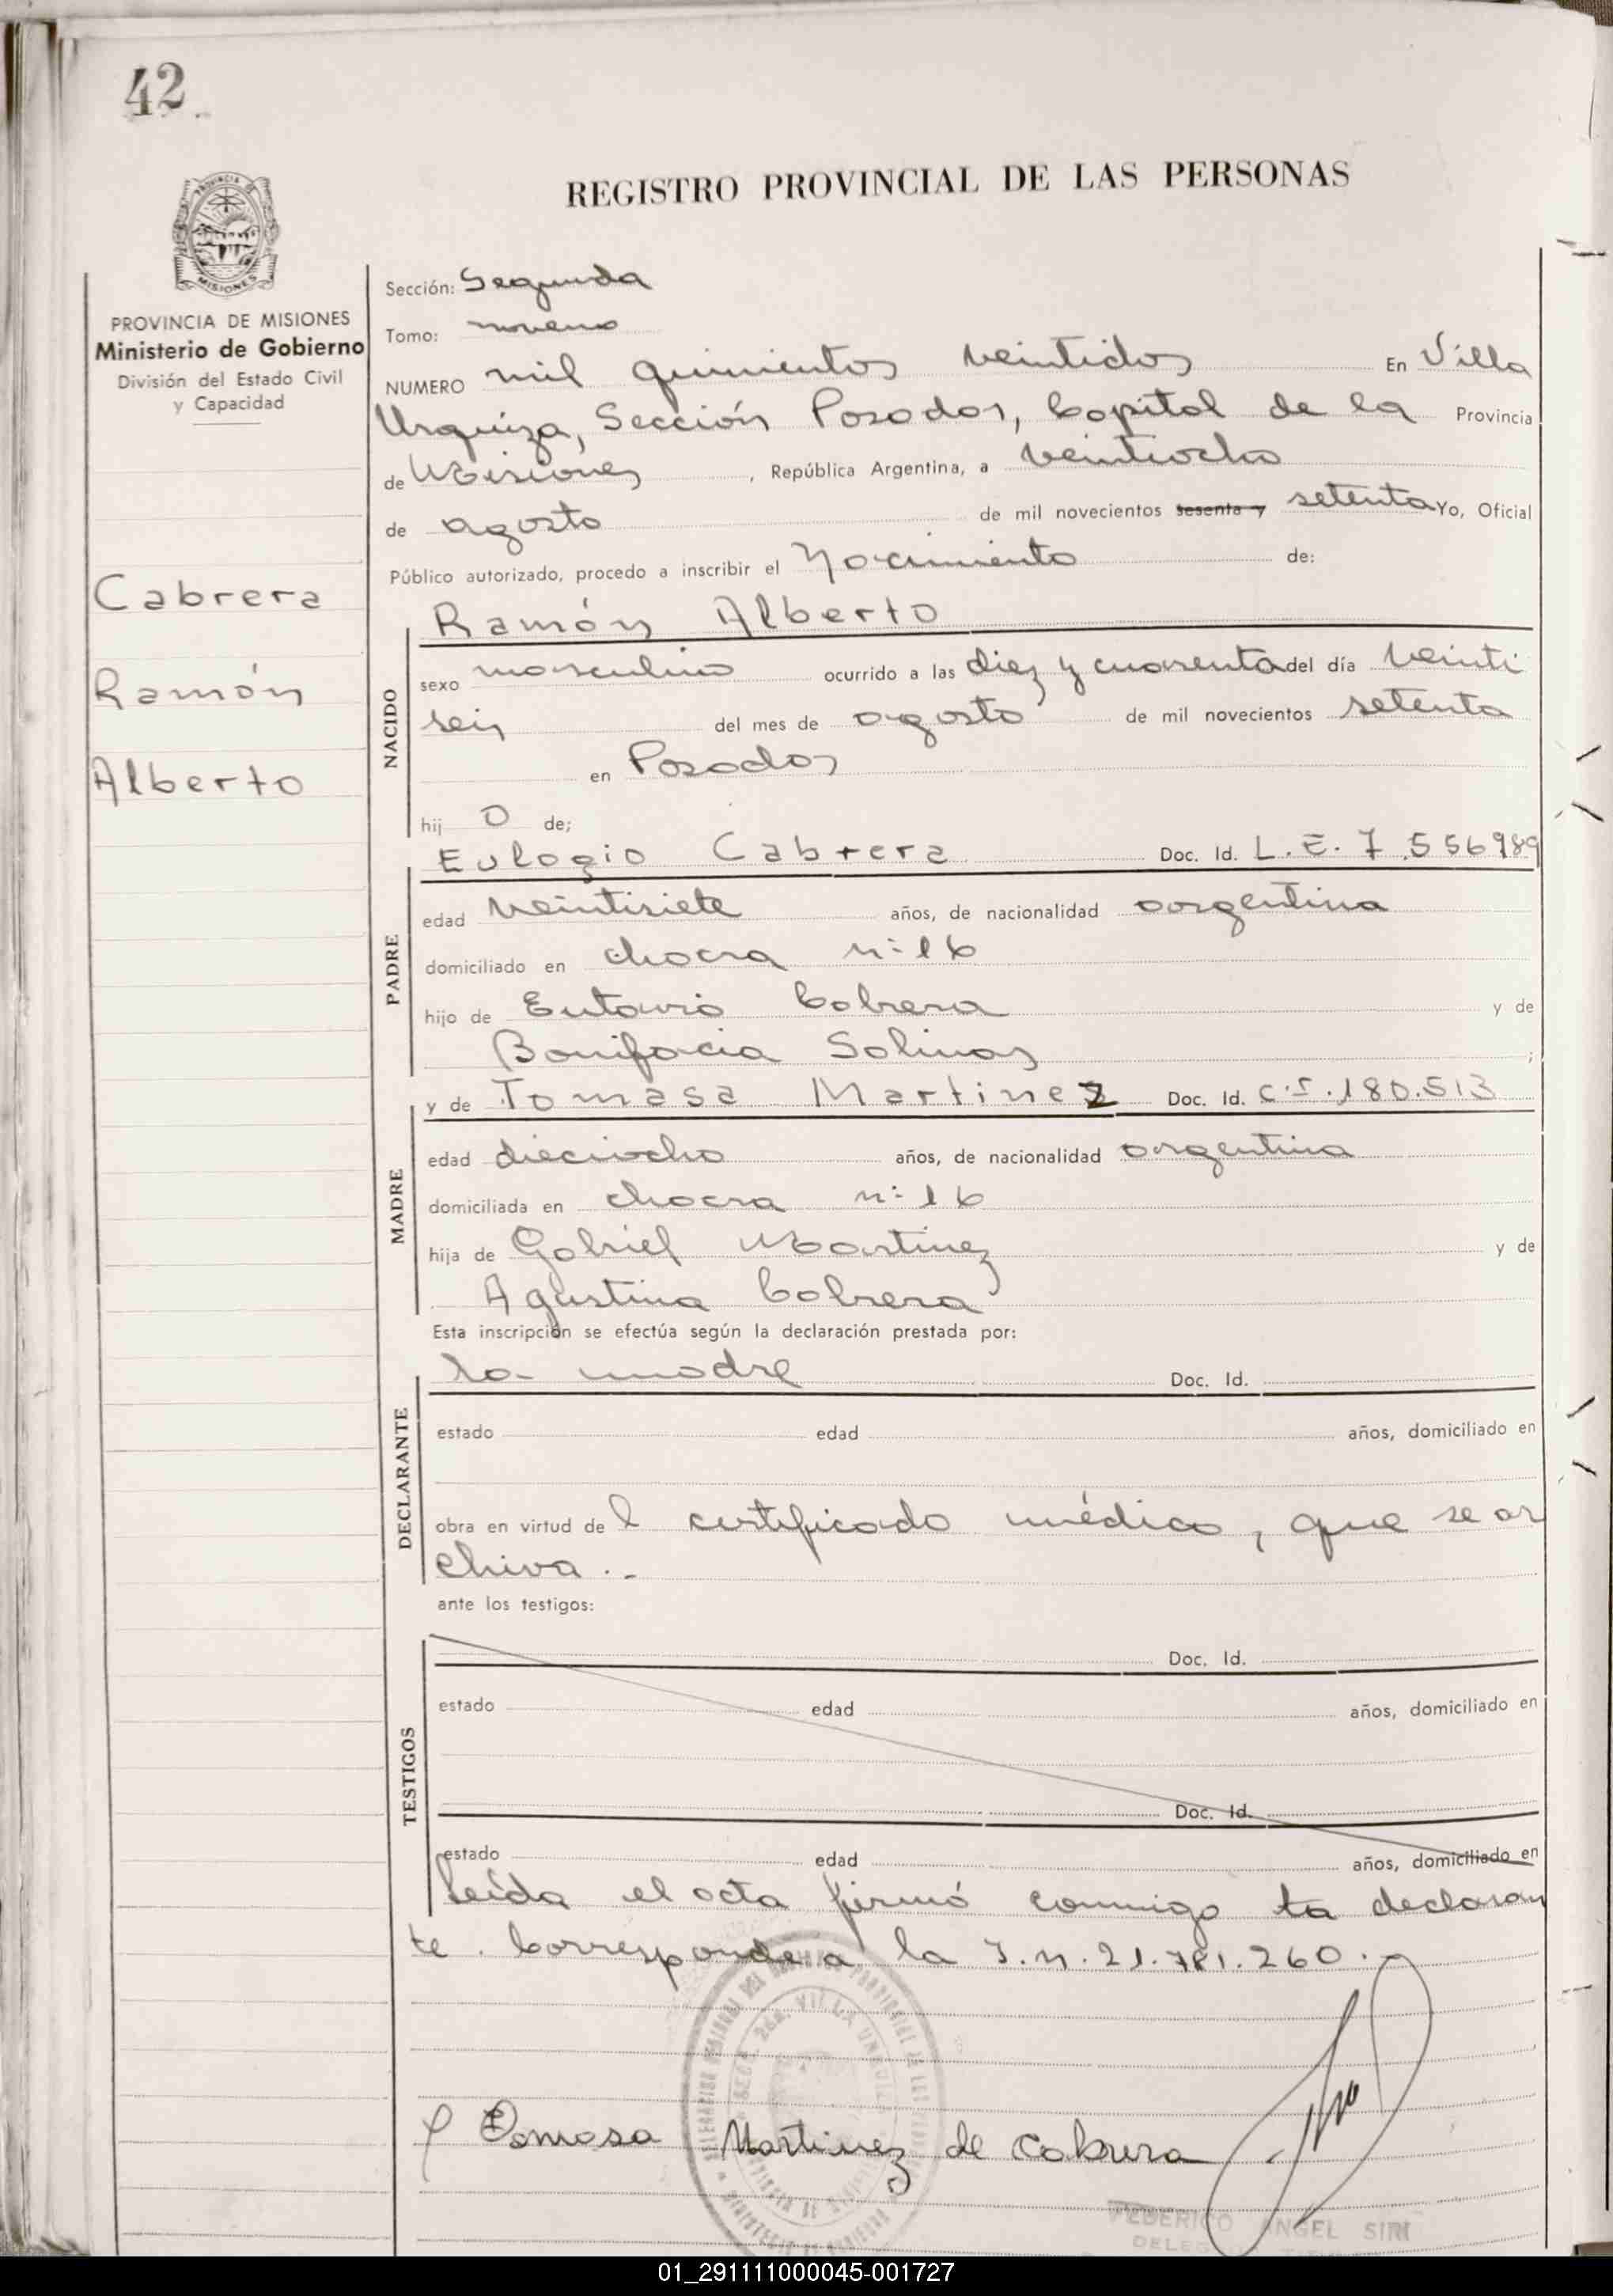 42
REGISTRO PROVINCIAL DE LAS PERSONAS
MISIONES
PROVINCIA DE MISIONES
Ministerio de Gobierno
División del Estado Civil
y Capacidad
Cabrera
Ramón
Alberto
Sección: Segunda
Tomo: noveno
NUMERO mil quinientos veintidos En Villa
Urquiza, Sección Posadas, Capital de la Provincia
de Misiones, República Argentina, a veintiocho
de agosto de mil novecientos sesenta y setenta Yo, Oficial
Público autorizado, procedo a inscribir el Nacimiento de:
Ramón Alberto
NACIDO
sexo masculino ocurrido a las diez y cuarenta del día veinti
seis del mes de agosto de mil novecientos setenta
en Posadas
hij o de;
Eulogio Cabrera Doc. Id. L.E. 7.556989
PADRE
edad veintisiete años, de nacionalidad argentina
domiciliado en chacra nº 16
hijo de Cabrera y de
Bonifacia Salinas ;
y de Tomasa Martinez Doc. Id. C.I. 180.513
MADRE
edad dieciocho años, de nacionalidad argentina
domiciliada en chacra nº 16
hija de Gabriel Martinez y de
Agustina Cabrera
Esta inscripción se efectúa según la declaración prestada por:
la madre Doc. Id.
DECLARANTE
estado edad años, domiciliado en
obra en virtud de l certificado médico, que se ar
chiva . -
ante los testigos:
Doc. Id.
TESTIGOS
estado edad años, domiciliado en
Doc. Id.
estado edad años, domiciliado en
Leída el acta firmó conmigo la declaran
te. Corresponde a la I.n. 21.781.260.-
Tomasa Martinez de Cabrera
FEDERICO ANGEL SIRI
01_291111000045-001727